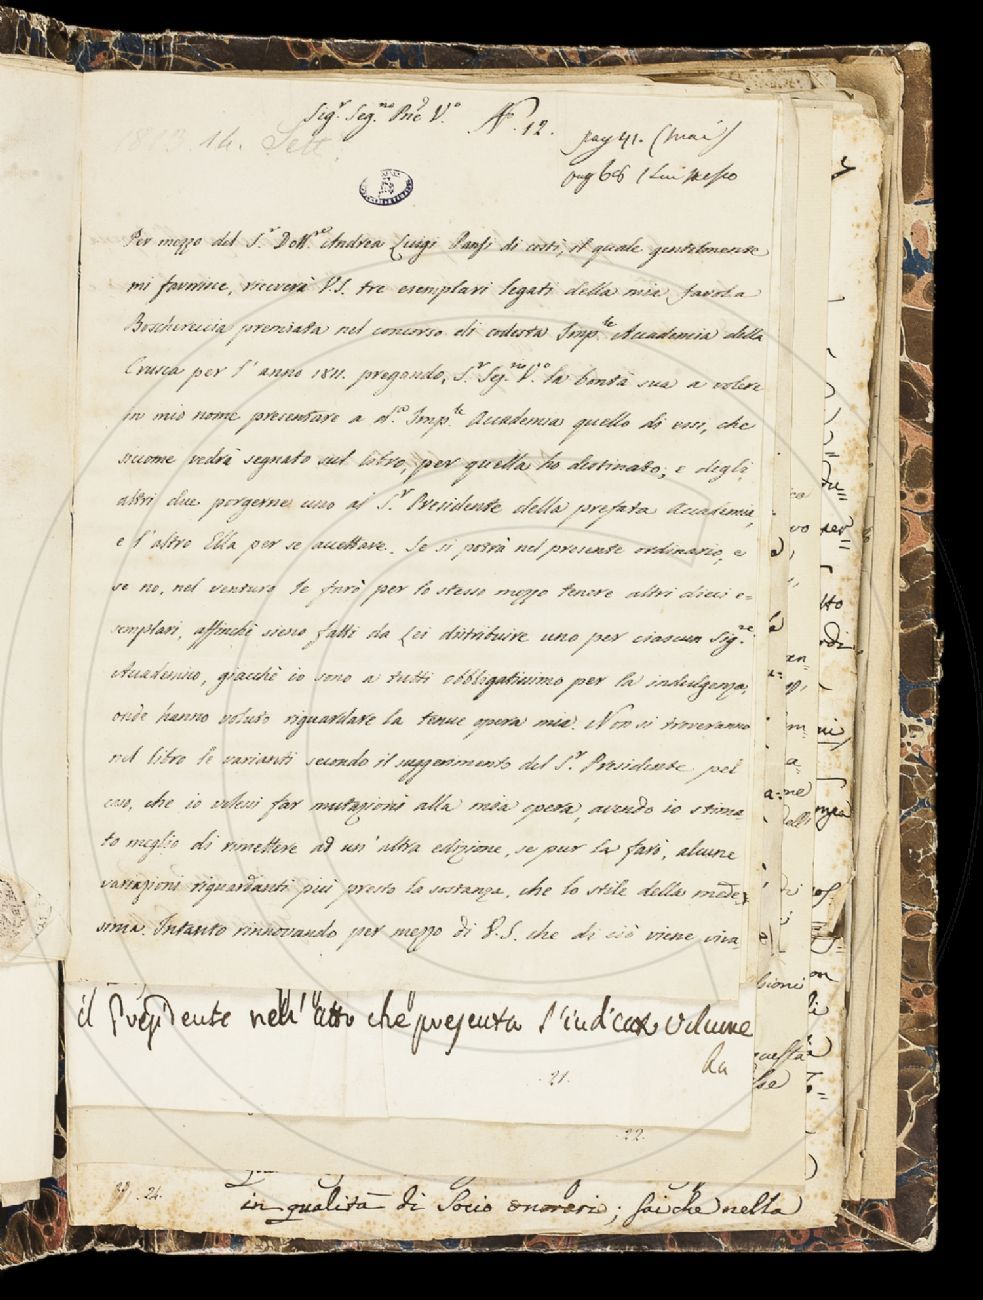 Sig.r Seg.rio Pn.e V.o N.o 12.
1813. 14. Sett.
pag 41. (mai)
pag 68 (Lui stesso
Per mezzo del S.r Dott.re Andrea Luigi di costì, il quale gentilmente
mi favorisce, riceverà V.S. tre esemplari legati della mia favola
Boschereccia premiata nel concorso di codesta Imp.le Accademia della
Crusca per l'anno 1811. pregando, S.r Seg.rio V.o la bontà sua a volere
in mio nome presentare a d.a Imp.le Accademia quello di essi, che
siccome vedrà segnato sul libro, per quella ho destinato; e degli
altri due porgerne uno al S.r Presidente della prefata Accademia,
e l'altro Ella per se accettare. Se si potrà nel presente ordinario, e
se no, nel venturo le farò per lo stesso mezzo tenere altri dieci e-
semplari, affinchè sieno fatti da Lei distribuire uno per ciascun Sig.re
Accademico, giacchè io sono a tutti obbligatissimo per la indulgenza,
onde hanno voluto riguardare la tenue opera mia. Non si troveranno
nel libro le varianti secondo il suggerimento del S.r Presidente pel
caso, che io volessi far mutazioni alla mia opera, avendo io stima-
to meglio di rimettere ad un'altra edizione, se pur la farò, alcune
variazioni riguardanti più presto la sostanza, che lo stile della mede-
sima. Intanto rinnovando per mezzo di V.S. che di ciò viene viva-
il Presidente nell'atto che presenta l'indicato volume
ha
21.
22.
24.
in qualità di Socio onorario; sai che nella